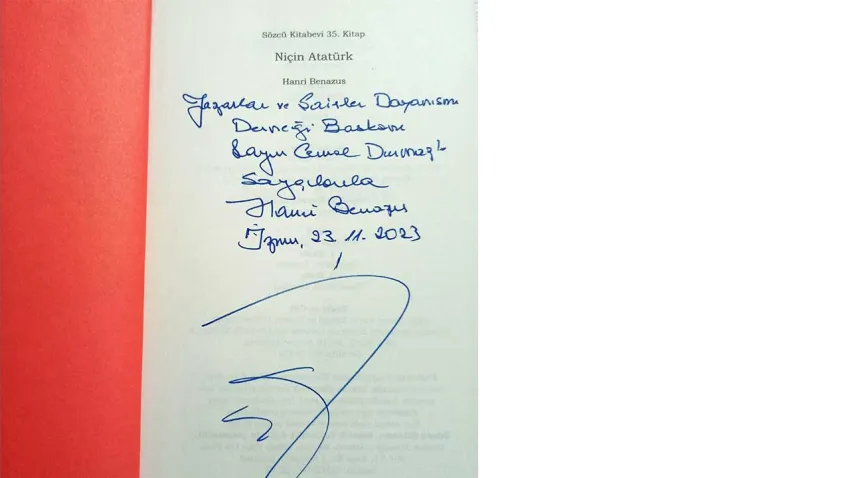 Sözcü Kitabevi 35. Kitap
Niçin Atatürk
Hanri Benazus
Yazarlar ve Şairler Dayanışma
Derneği Başkanı
Sayın Cemal
Saygılarımla
Hanri Benazus
İzmir, 23.11.2023